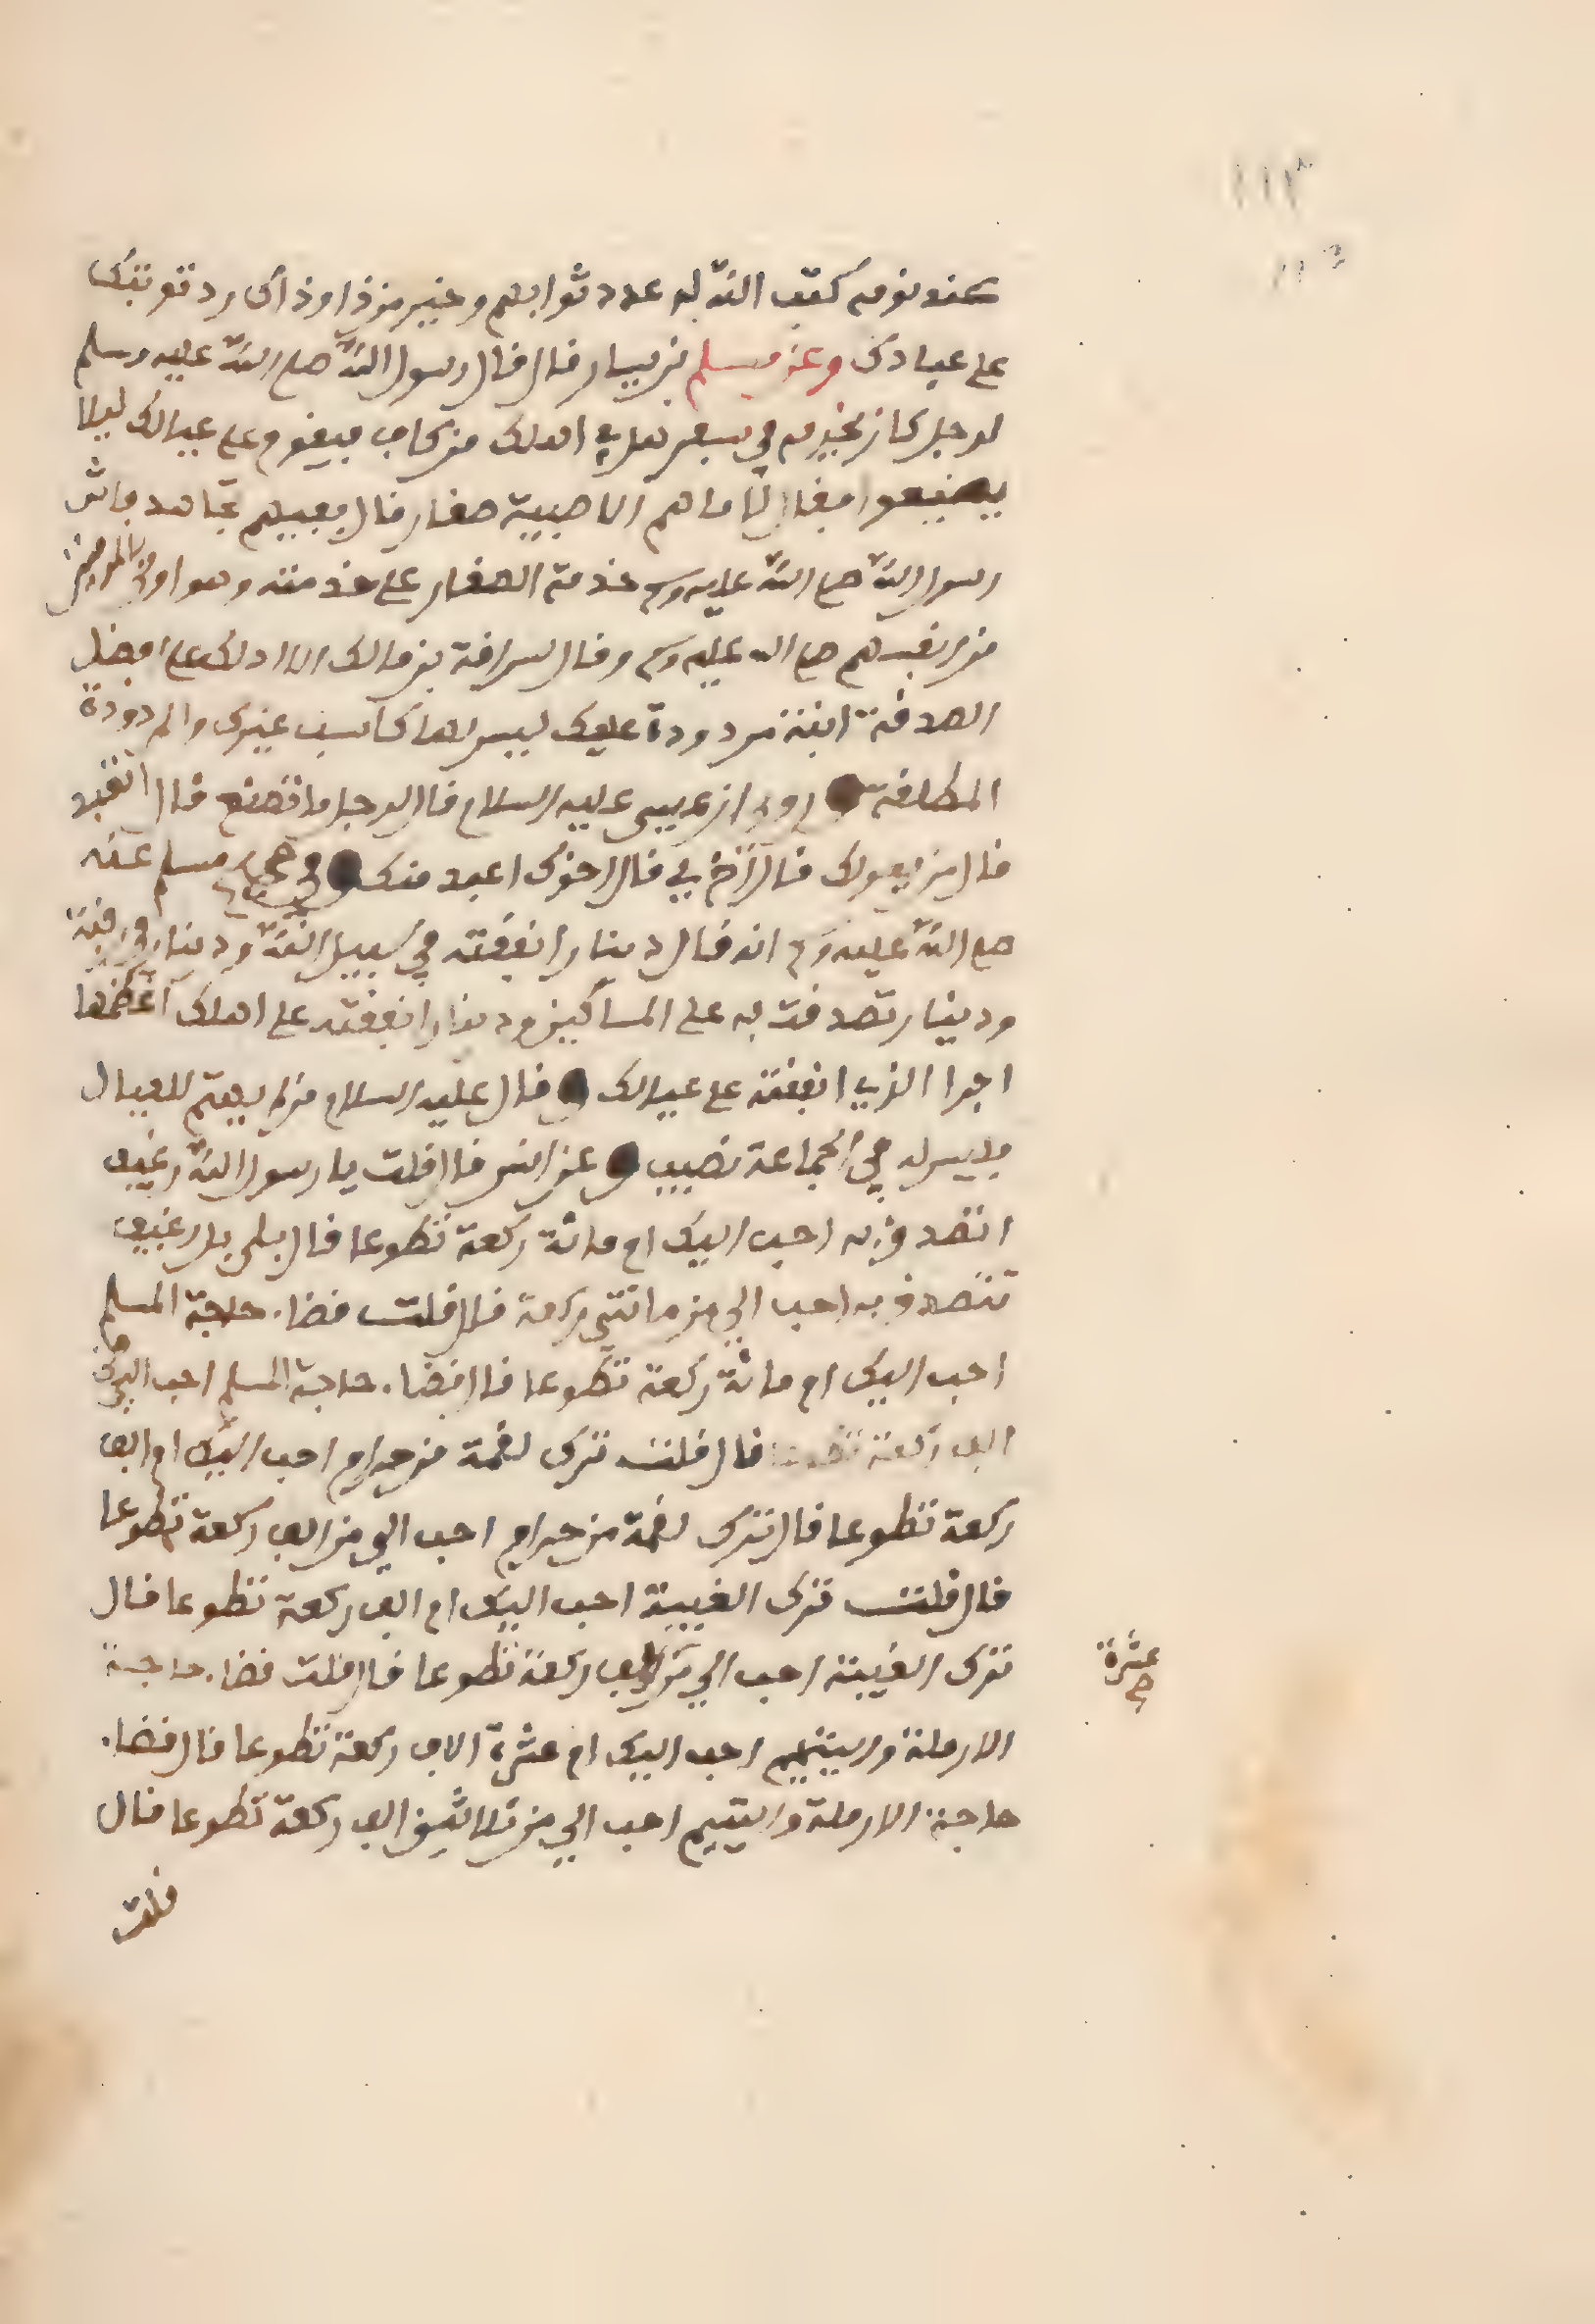 عند نومه كتب الله له عدد ثوابهم وخير من ذا وذاك رد قوتك
على عيالك وعن مسلم بن يسار قال قال رسول الله صلى الله عليه وسلم
لرجل كان يخدمه في سفر هل في اهلك من كاف فيقوم على عيالك ليلا
يضيعوا فقال لا ما هم الا صبية صغار قال ففيهم فجاهد فاثر
رسول الله صلى الله عليه وسلم خدمة الصغار على خدمته وهو اولى بالمومنين
من انفسهم صلى الله عليه وسلم وقال لسراقة بن مالك الا ادلك على افضل
الصدقة ابنة مردودة عليك ليس لها كاسب غيرك والمردودة
المطلقة وروي ان عيسى عليه السلام قال لرجل ما تصنع قال اتعبد
قال من يعولك قال اخ لي قال اخوك اعبد منك وفي مسلم عنه
صلى الله عليه وسلم انه قال دينار انفقته في سبيل الله ودينار في رقبة
ودينار تصدقت به على المساكين ودينار انفقته على اهلك اعظمها
اجرا الذي انفقته على عيالك وقال عليه السلام من لم يهتم للعيال
فليس له في الجماعة نصيب وعن انس قال قلت يا رسول الله رغيف
اتصدق به احب اليك ام مائة ركعة تطوعا قال بلى بل رغيف
تتصدق به احب الي من مائتي ركعة قال قلت قضاء حاجة المسلم
احب اليك ام مائة ركعة تطوعا قال قضاء حاجة المسلم احب الي من
الف ركعة تطوعا قال قلت ترك لقمة من حرام احب اليك ام الف
ركعة تطوعا قال ترك لقمة من حرام احب الي من الف ركعة تطوعا
قال قلت ترك الغيبة احب اليك ام الف ركعة تطوعا قال
ترك الغيبة احب الي من الف ركعة تطوعا قال قلت قضاء حاجة
عشرة
صح
الارملة واليتيم احب اليك ام عشرة الاف ركعة تطوعا قال قضاء
حاجة الارملة واليتيم احب الي من ثلاثين الف ركعة تطوعا قال
قلت